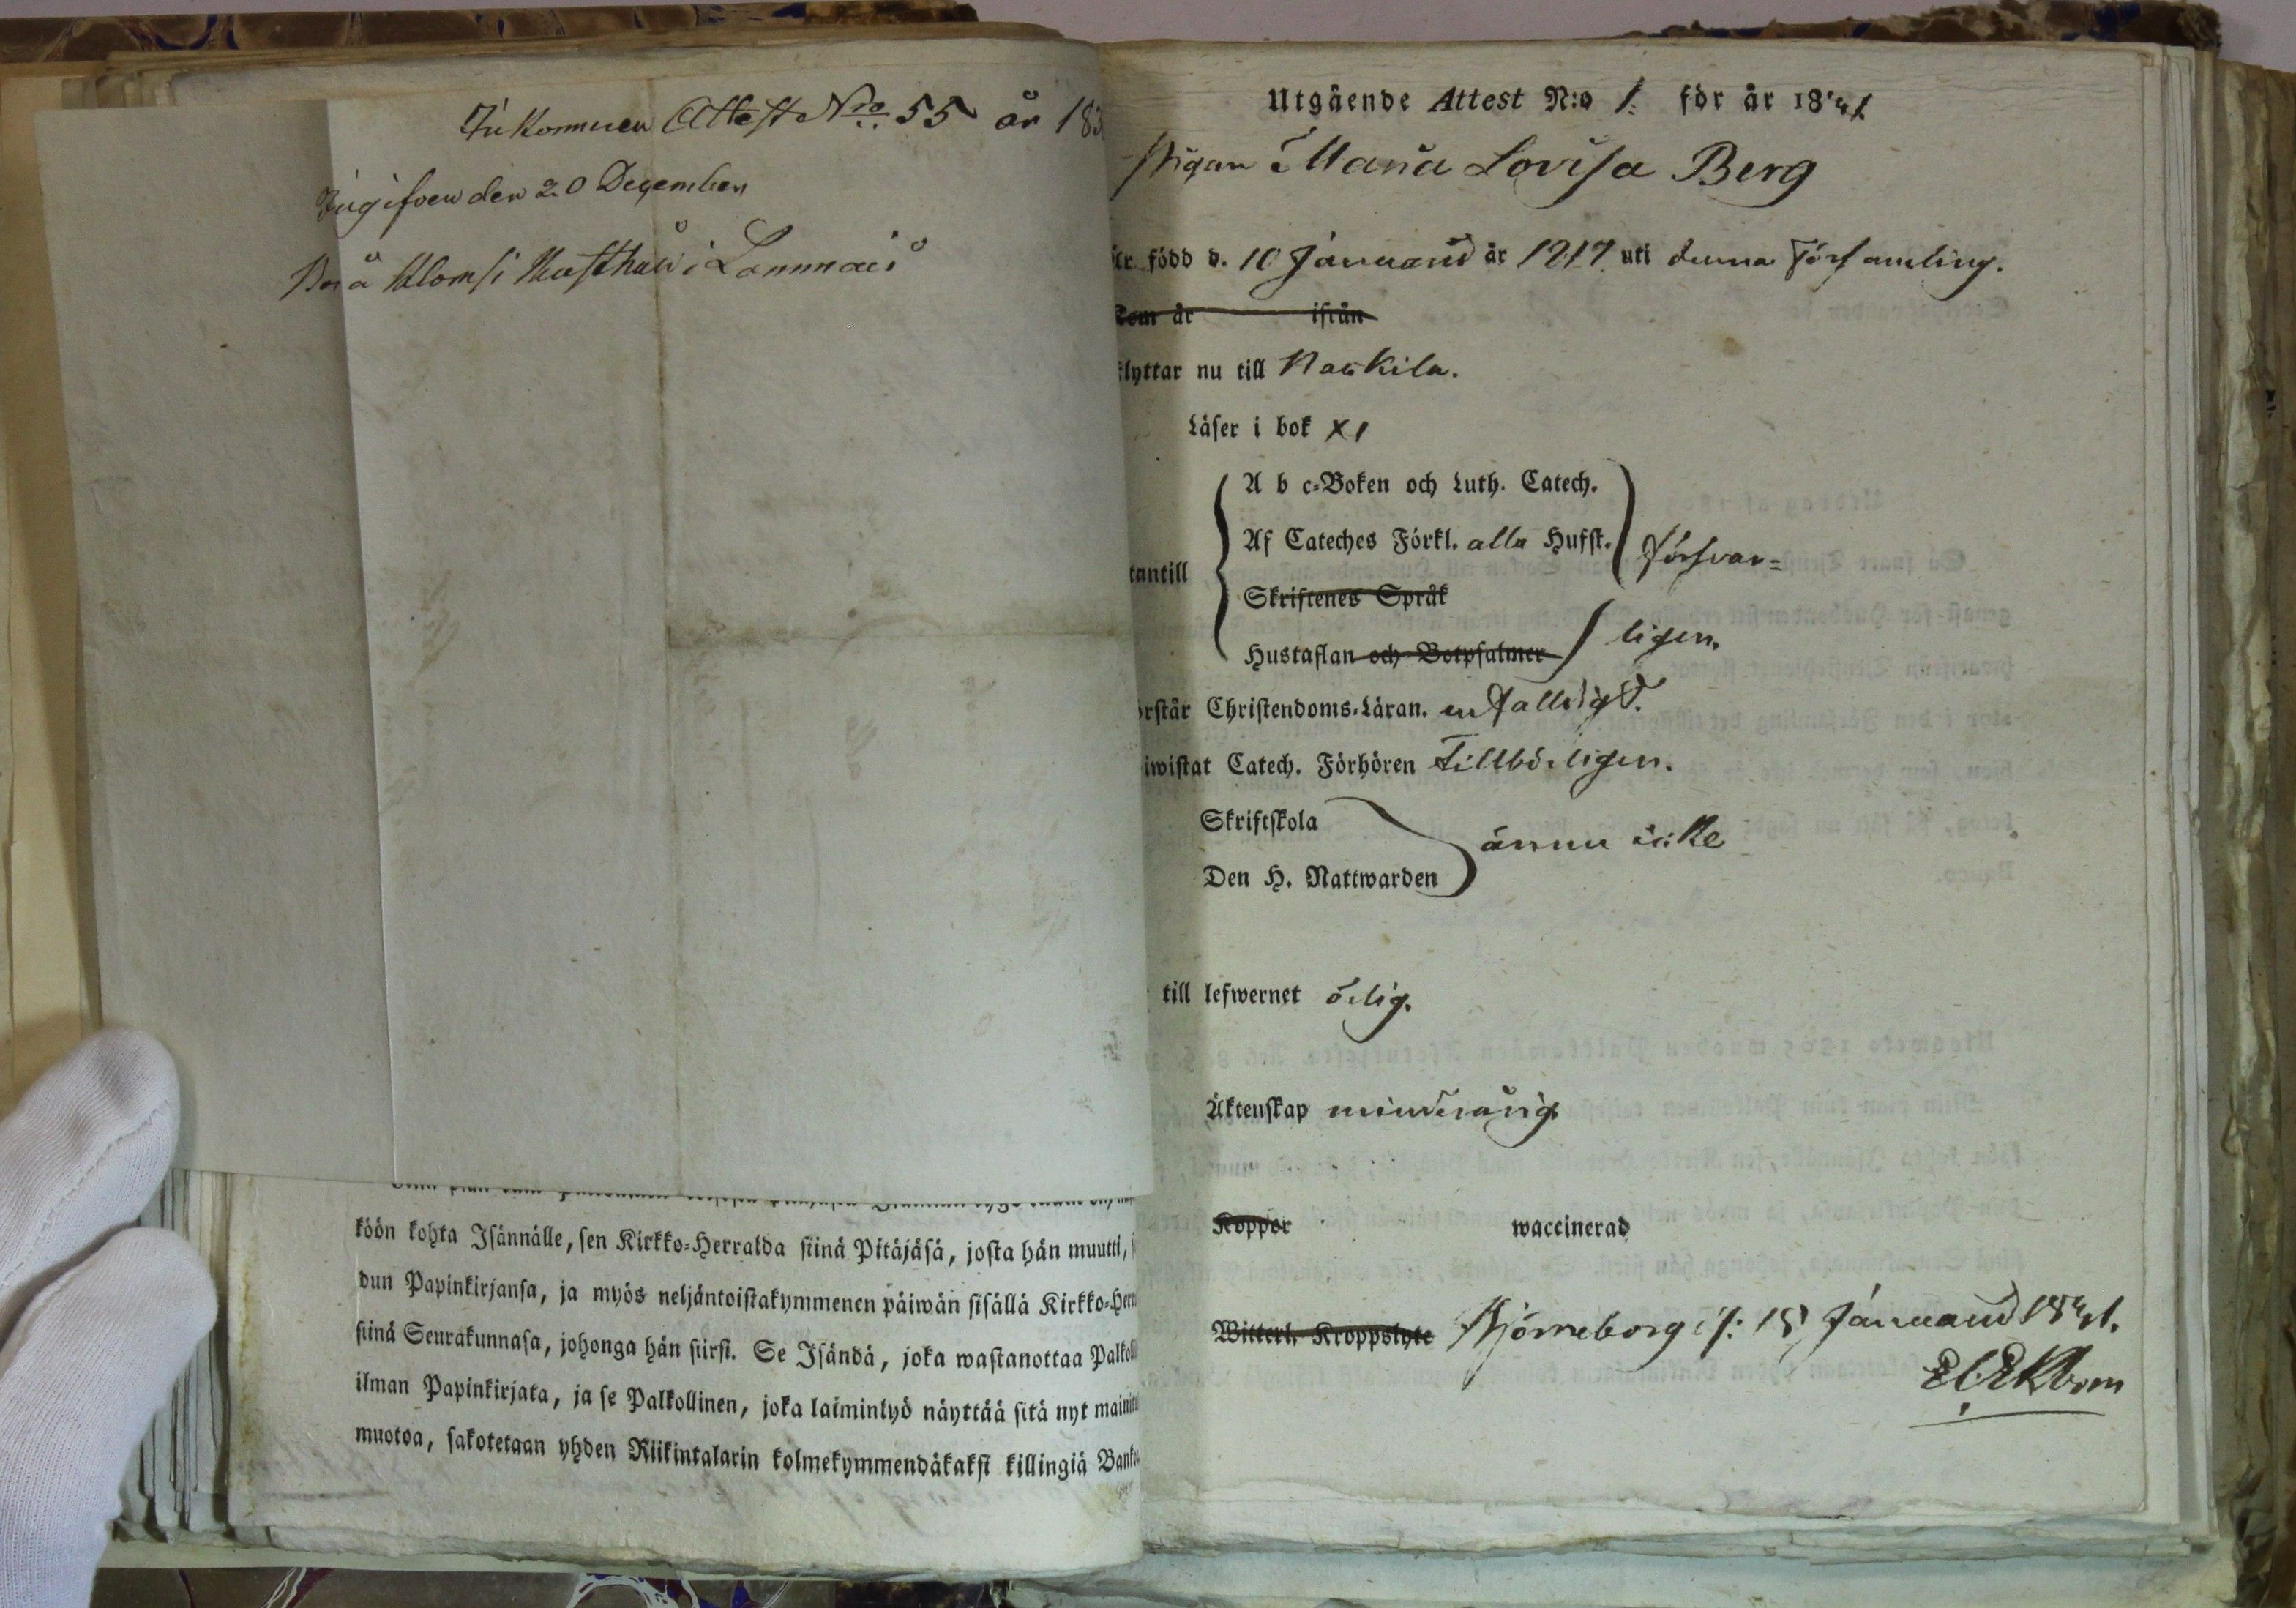 Inkommen Attest Nro. 55 år 183
Ingifven den 20 December
Bor å Klomsi i Lammais
köön kohta Isännälle, sen Kirkko-Herralda siinä Pitäjäsä, josta hän muutti,
dun Papinkirjansa, ja myös neljäntoistakymmenen päiwän sisällä Kirkko-Herr
siinä Seurakunnasa, johonga hän siirsi. Se Isändä, joka wastanottaa Palkolli
ilman Papinkirjata, ja se Palkollinen, joka laiminlyö näyttää sitä nyt mainitu
muotoa, sakotetaan yhden Riikintalarin kolmekymmendäkaksi killingiä Banko
Utgående Attest N:o 1. för år 1841
Pigan Maria Lovisa Berg
är född d. 10 Januarii år uti denna Församling.
Kom år ifrån
flyttar nu till Nackila.
Läser i bok XI
A b c-Boken och Luth. Catech.
Af Cateches Förkl. alla Hufst. försvar=
utantill
Skriftenes Språk
Hustaflan och Botpsalmer ligen.
örstår Christendoms-Läran. enfalldigt.
iwistat Catech. Förhören tillbörligen.
Skriftskola
ännu icke
Den H. Nattwarden
till lefwernet ärlig.
Äktenskap minderårig.
Koppor waccinerad
Witterl. Kroppslyte Björneborg d: 18 Januarii 1841.
Ekbom